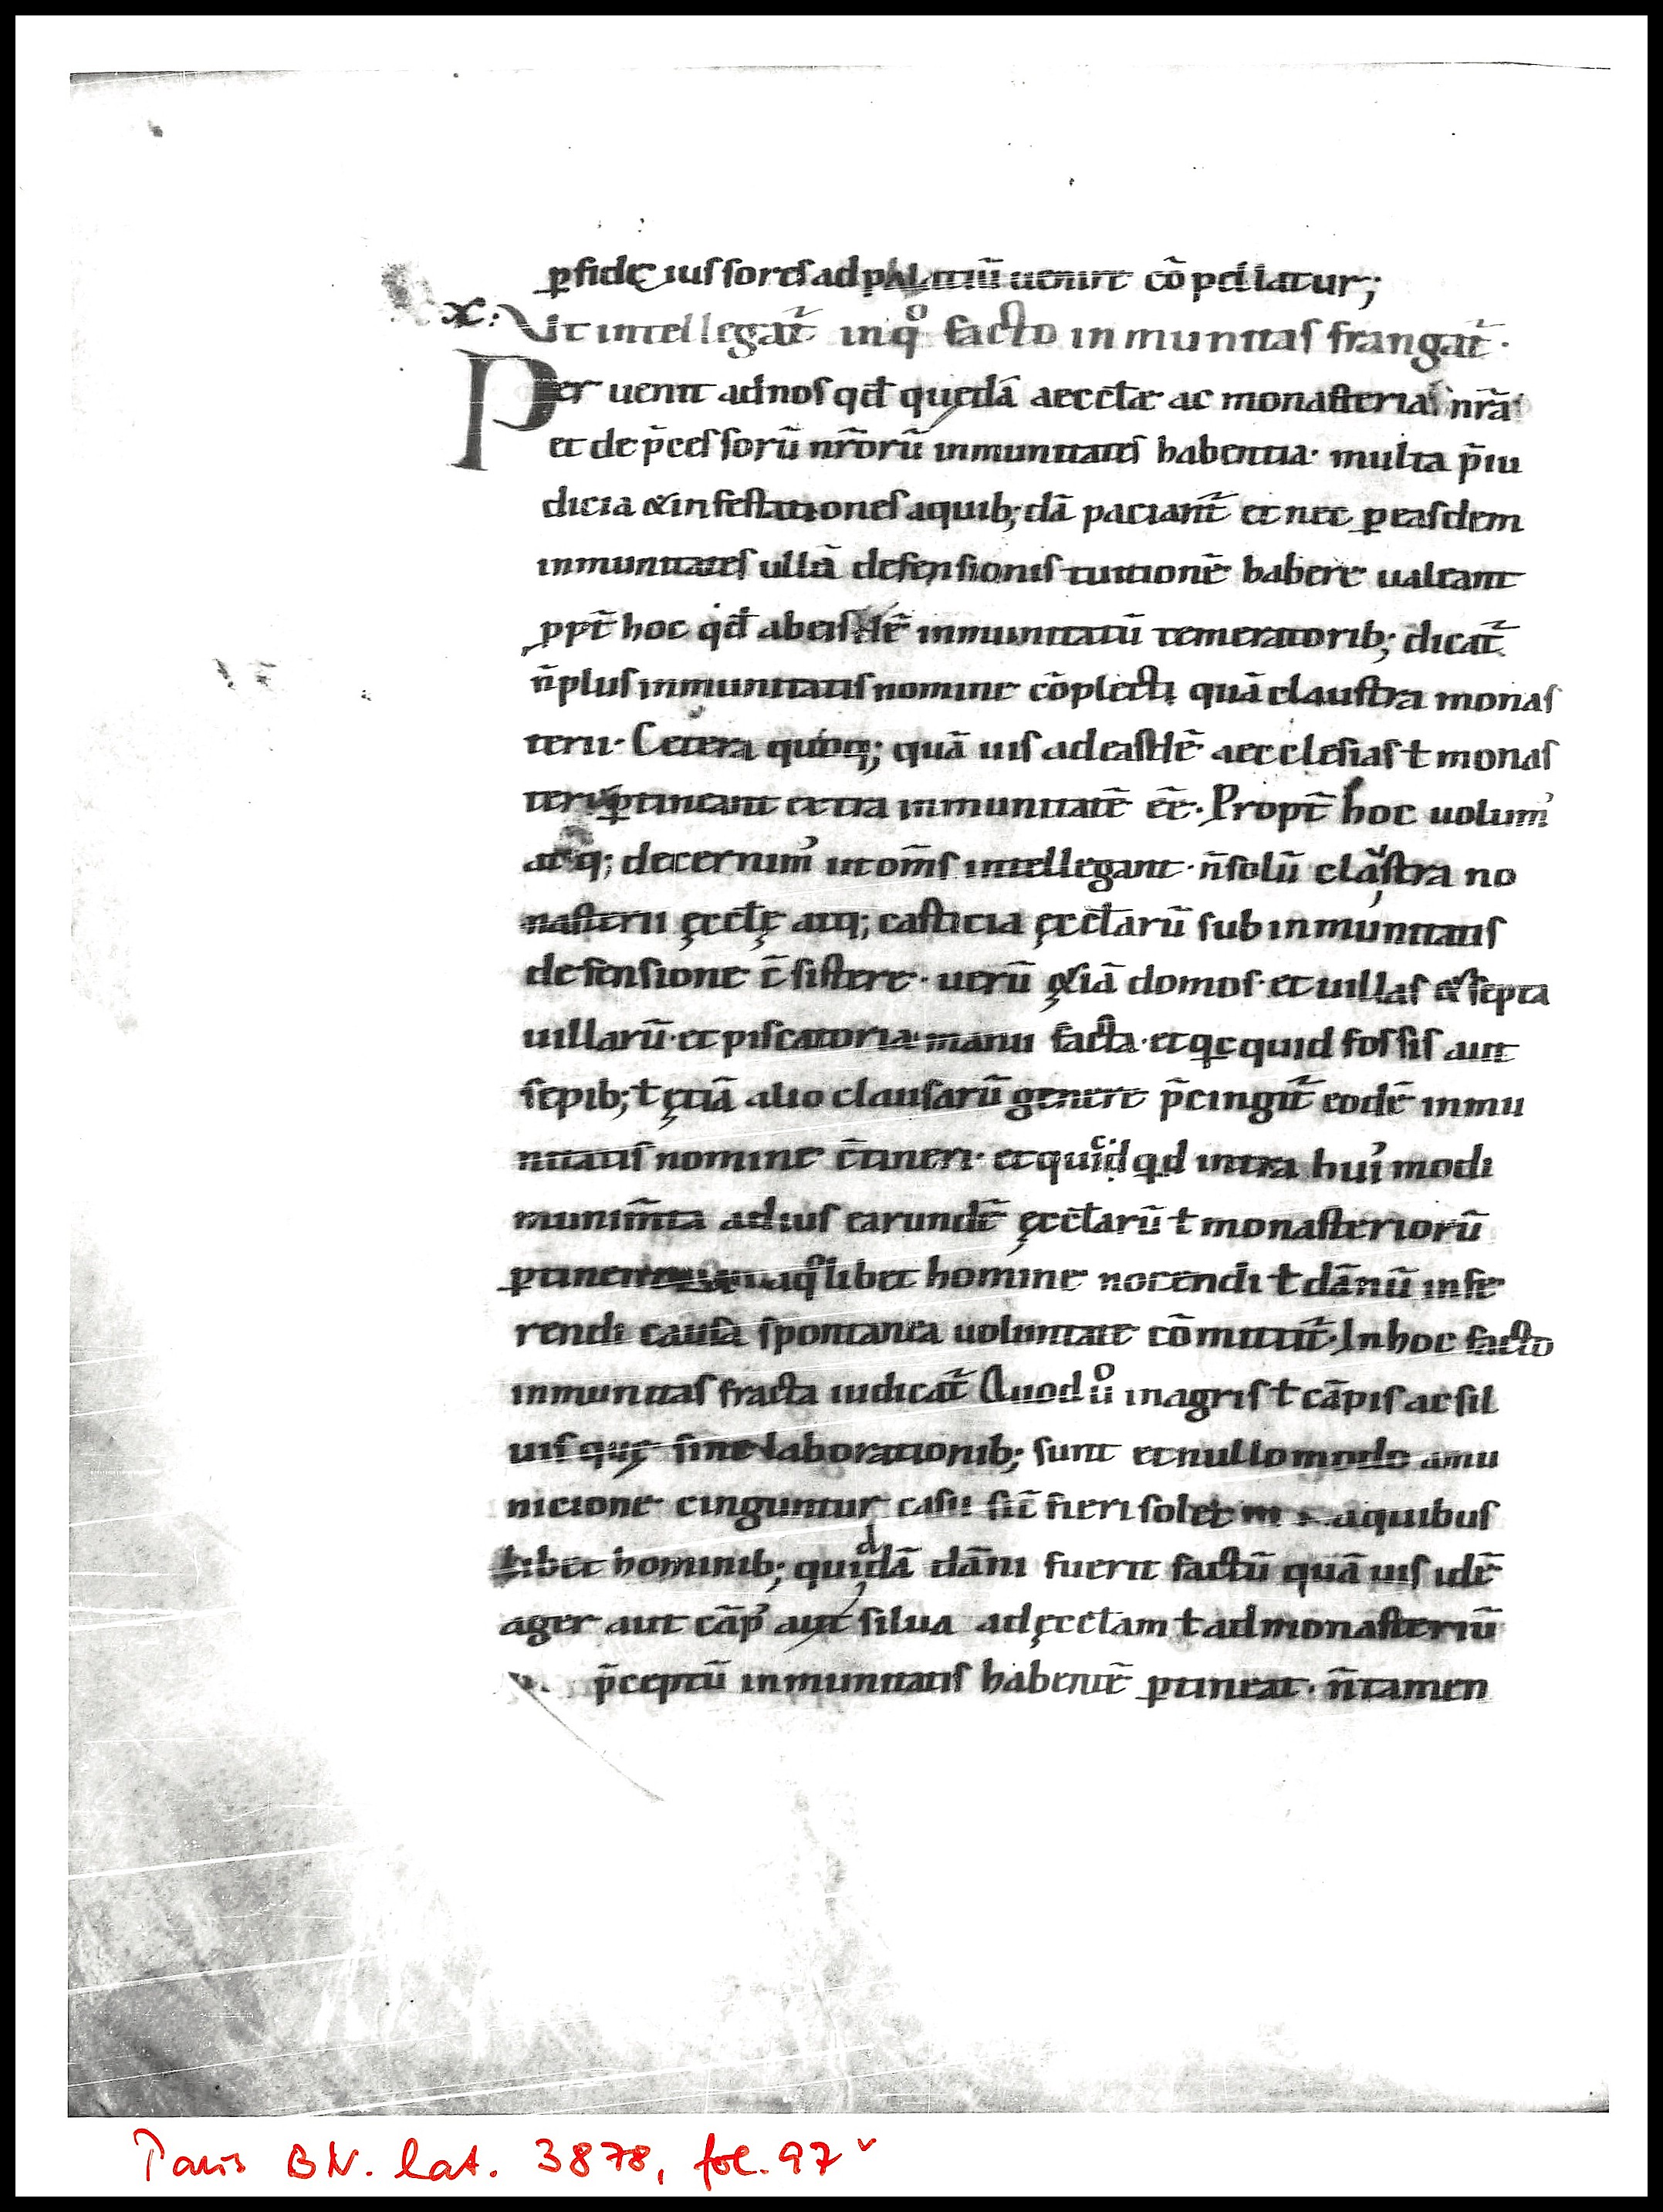 ꝑ fidę ius sores ad palatiū uenire cō pellatur;
x: Vt intellegat᷑ in qͦ facto inmunitas frangat᷑·
Per uenit ad nos qđ quędā aeccłæ ac monasteria nr̄ās
et de p̄ces sorū nr̄orū inmunitates habentia· multa p̄iu
dicia & infestationes a quib; dā paciant᷑ et nec ꝑ easdem
inmunitates ullā defensionis tuitionē habere ualeant
ꝓpt̄ hoc qđ ab eis dē inmunitatū temeratorib; dicat᷑
n̄ plus inmunitatis nomine cōplecti quā claustra monas
terii· Cetera quoq; quā uis ad easdē aecclesias ł monas
terii ꝑtineant extra inmunitatē eē· Propt̄ hoc uolum᾽
atq; decernim᾽ ut om̄s intellegant· n̄ solū claustra no
nasterii ęccłę atq; casticia ęccłarū sub inmunitatis
defensione c̄sistere· uerū ę&iā domos· et uillas & septa
uillarū· et piscatoria manu facta· et qcquid fossis aut
sepib; ł ętiā alio clausarū genere p̄cingit᷑ eodē inmu
nitatis nomine c̄tineri· et quicid qd intra hui᾽ modi
munim̄ta ad ius earundē ęccłarū ł monasteriorū
ꝑtinen a qͦlibet homine nocendi ł dānū infe
rendi causa spontanea uoluntate cōmittit᷑· In hoc facto
inmunitas fracta iudicat᷑ Quod uͦ in agris ł cāpis ac sil
uis quę sine laborationib; sunt et nullo modo a mu
nicione cinguntur casu sic̄ fieri solet a quibus
libet hominib; quiddā dāni fuerit factū quā uis idē
ager aut cāp᾽ aut silua ad ęccłam ł ad monasteriū
p̄ceptū inmunitatis habentē ꝑtineat· n̄ tamen
Paris BN. lat. 3878, fol. 97ᵛ